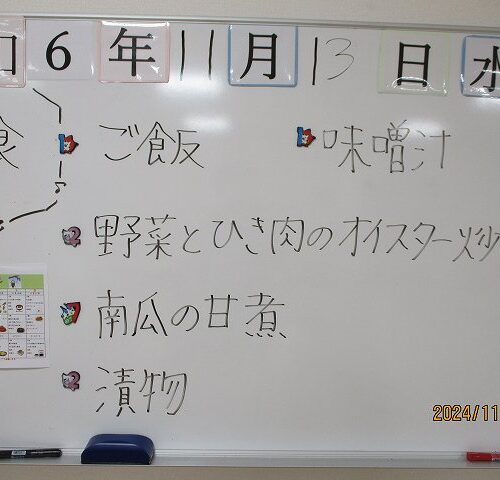 和6年11月13日水
食
ご飯 味噌汁
野菜とひき肉のオイスター炒
南瓜の甘煮
漬物
2024/11